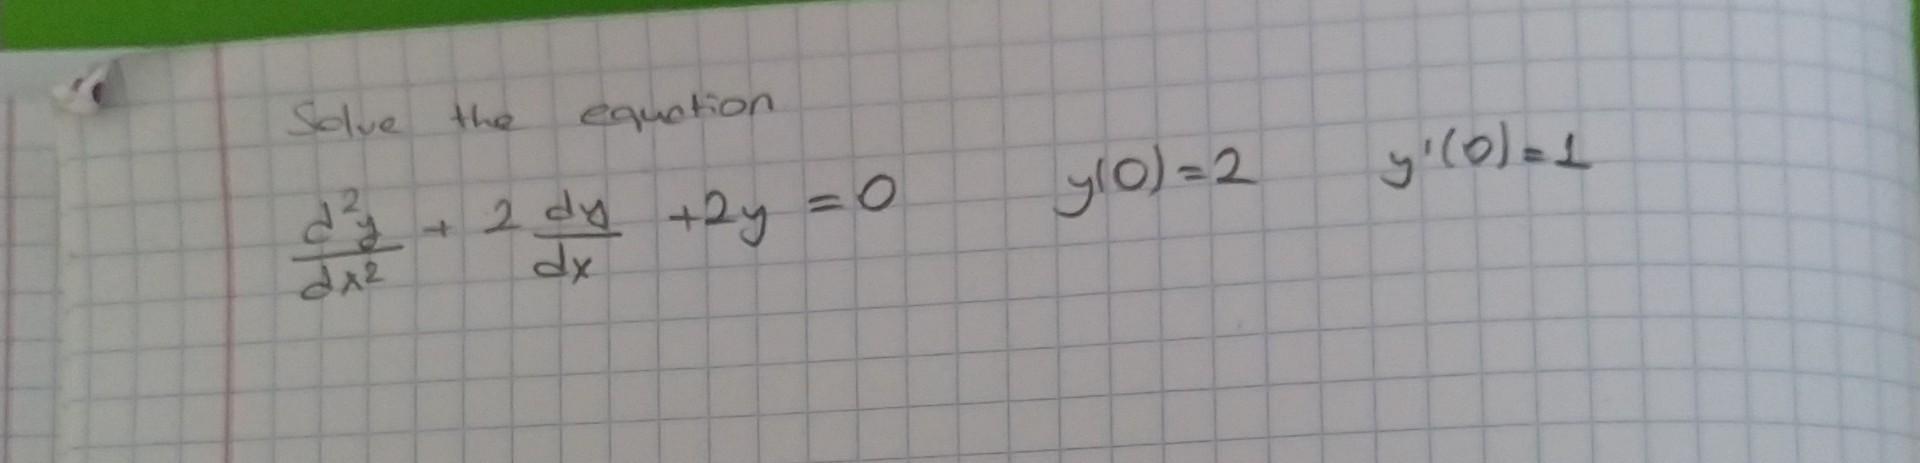 Solve the equation
d²y/dx² + 2 dy/dx + 2y = 0 y(0) = 2 y'(0) = 1